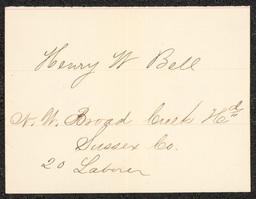 Henry W Bell
N. W. Broad Creek Hd
Sussex Co.
20 Laborer